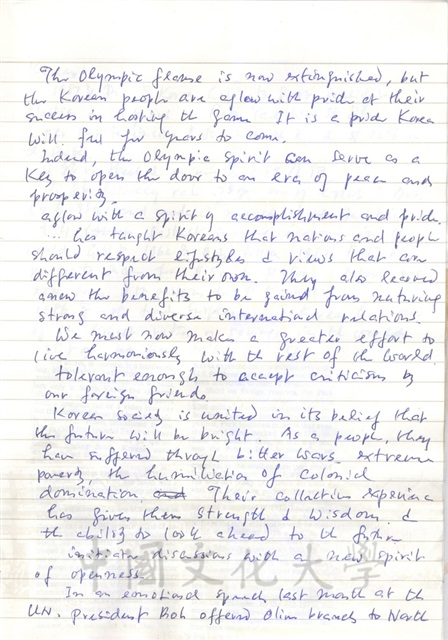 The Olympic flame is now extinguished, but
the Korean people are aglow with pride at their
success in hosting the game. It is a pride Korea
will feel for years to come.
Indeed, the Olympic spirit can serve as a
key to open the door to an era of peace and
prosperity.
aglow with a spirit of accomplishment and pride.
... has taught Koreans that nations and people
should respect lifestyles & views that are
different from their own. They also learned
anew the benefits to be gained from nurturing
strong and diverse international relations.
We must now make a greater effort to
live harmoniously with the rest of the world.
tolerant enough to accept criticism by
our foreign friends.
Korean society is united in its belief that
the future will be bright. As a people, they
have suffered through bitter wars, extreme
poverty, the humiliation of colonial
domination. Their collective experience
has given them strength & wisdom, &
the ability to look ahead to the future
initiate discussions with a new spirit
of openness.
In an emotional speech last month at the
UN. President Roh offered Olive branch to North
中國文化大學